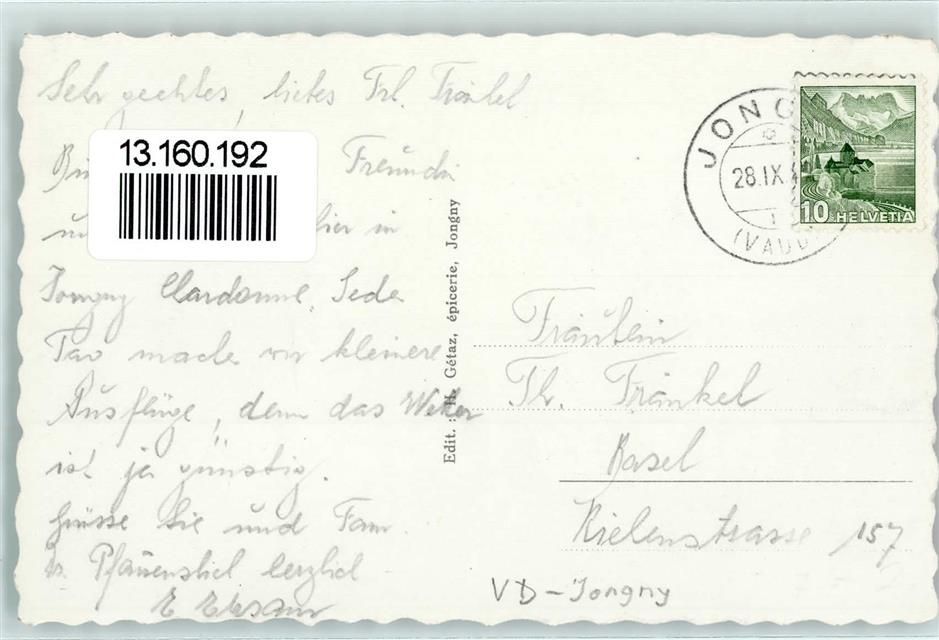 Sehr geehtes, liebes Frl. Fränkel
13.160.192
Freundin
hier in
Jongny Chardonne. Jede
Tag mache wir kleinere
Ausflüge, denn das Wetter
ist ja günstig.
Grüsse Sie und Fam.
Pfauenstiel herzlich
E
Edit. : H. Gétaz, épicerie, Jongny
JONG
28.IX.
(VAUD
10 HELVETIA
Fräulein
Th. Fränkel
Basel
Rielenstrasse 157
VD-Jongny